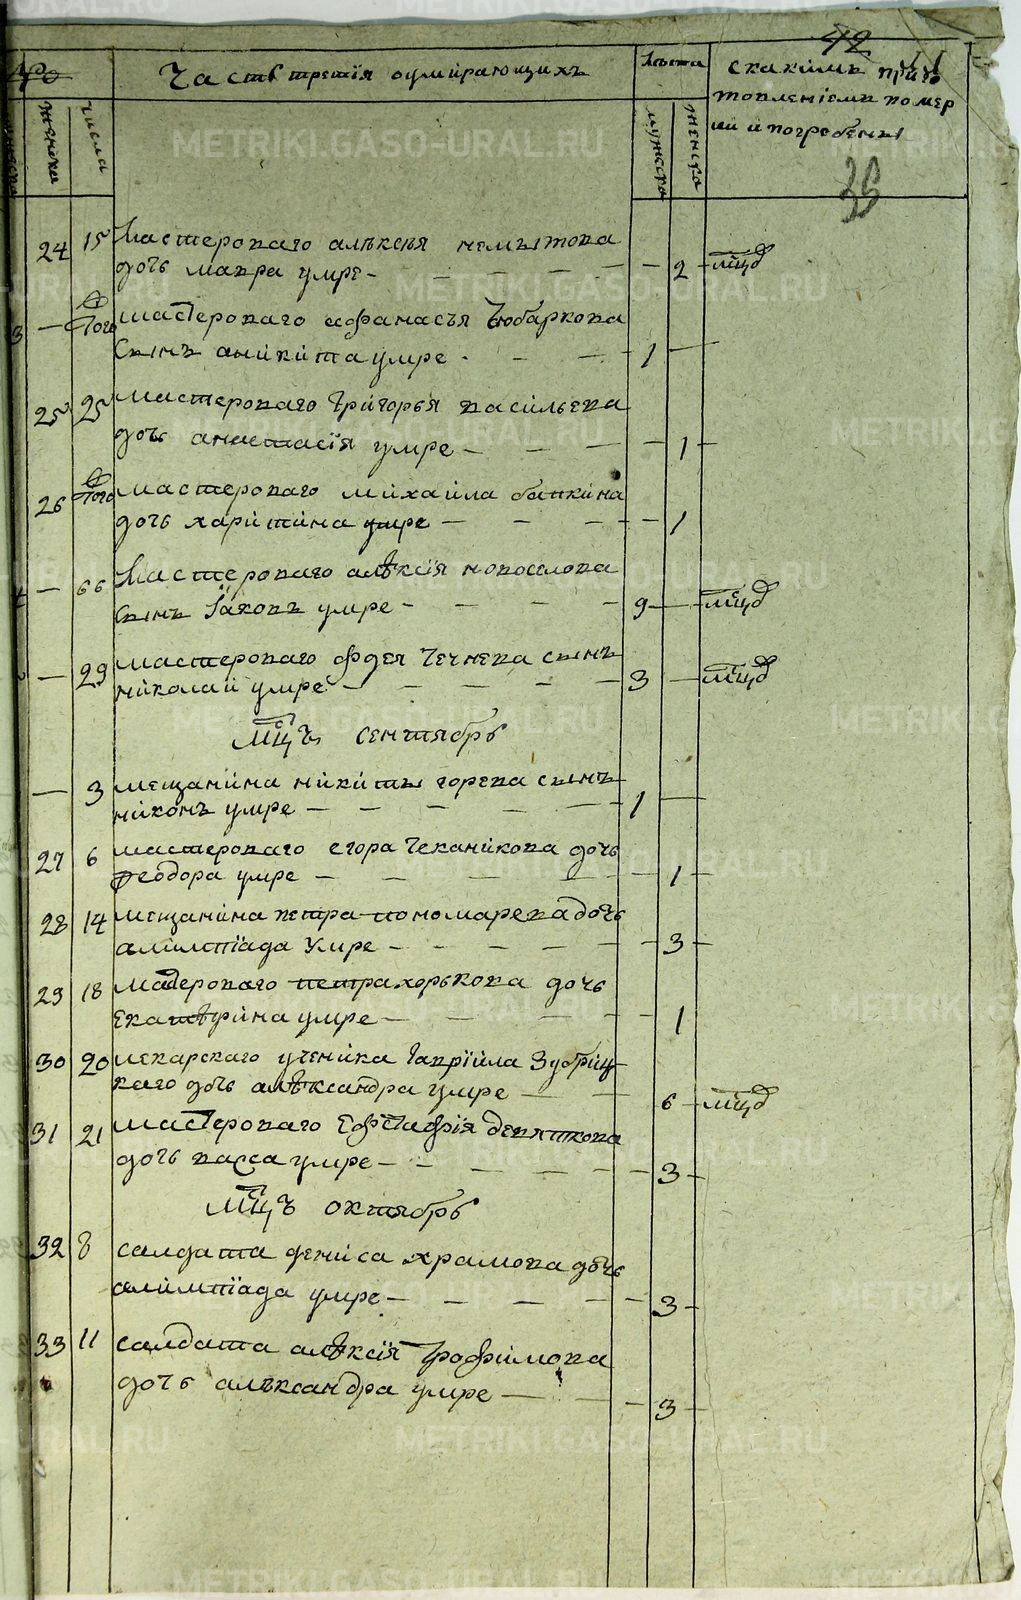 42
Часть третія оумирающихъ
Лѣта
скакимъ приго
товленіемъ помер
ли и погребены
женска
числа
мужска
женска
24 15 Мастероваго алѣксѣя немытова
дочь мавра умре — — — — 2 мцд
— того мастероваго афанасья Чюбаркова
сынъ аникита умре — — — 1 —
25 25 мастероваго Григорья васильева
дочь анастасія умре — — — 1 —
26 того мастероваго михаила бабкина
дочь харитина умре — — — 1
— 66 Мастероваго алѣксія новоселова
сынъ Іаковъ умре — — — 9 — мцд
— 29 мастероваго фдея Чечнева сынъ
николай умре — — — — 3 — мцд
Мцъ сентябрь
— 3 мещанина никиты горева сынъ
никонъ умре — — — — — 1 —
27 6 мастероваго егора Чеканикова дочь
феодора умре — — — — — 1 —
28 14 мещанина петра пономарева дочь
алимпіада умре — — — — 3 —
29 18 мастероваго петра хорькова дочь
Екатѣрина умре — — — — 1
30 20 лекарскаго ученика Гавріила Зубриц
каго дочь алѣксандра умре — — 6 — мцд
31 21 мастероваго Ефстафія девяткова
дочь васса умре — — — — — 3 —
Мцъ октябрь
32 8 салдата дениса храмова дочь
алимпіада умре — — — — — 3 —
33 11 салдата алѣксія Трофимова
дочь алѣксандра умре — — — 3 —
METRIKI.GASO-URAL.RU